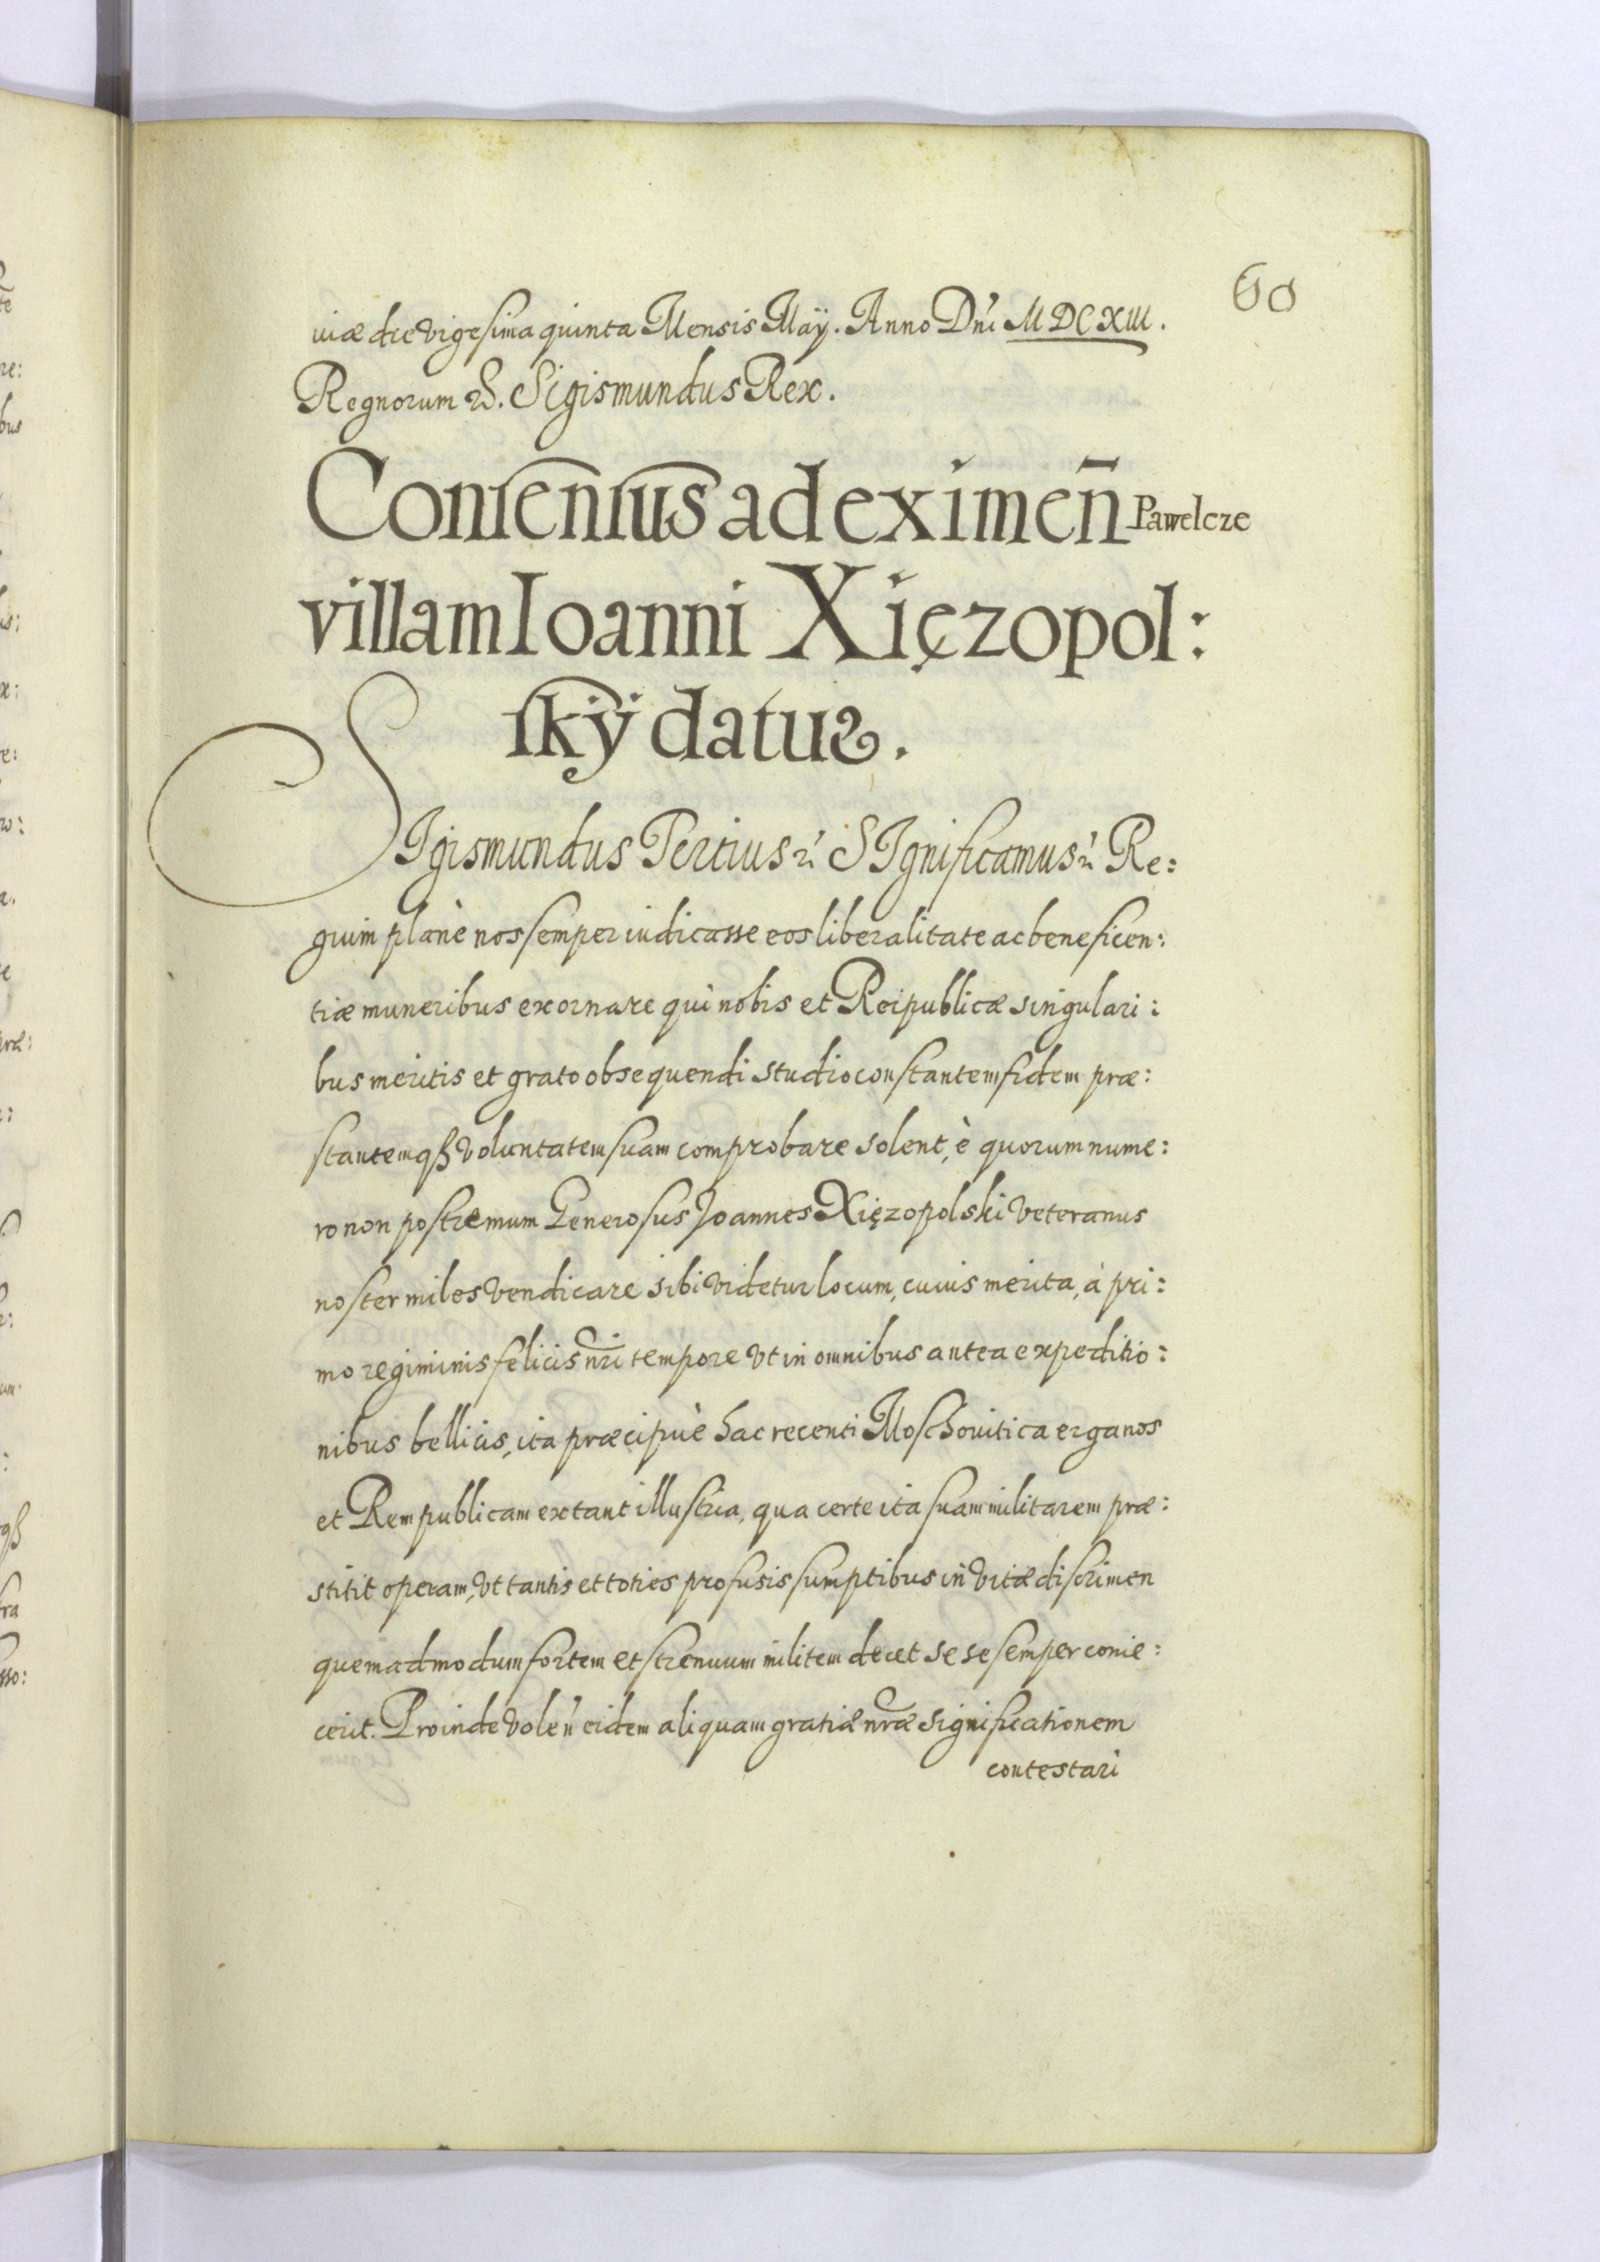 60
uiæ die vigesima quinta Mensis Maÿ. Anno Dni MDCXIII.
Regnorum &. Sigismundus Rex.
Consensus ad eximen̄ Pawelcze
villam Ioanni Xięzopol:
skÿ datus.
SIgismundus Tertius & SIgnificamus & Re:
gium planè nos semper iudicasse eos liberalitate ac beneficen:
tiæ muneribus exornare qui nobis et Reipublicæ singulari:
bus meritis et grato obsequendi studio constantem fidem præ:
stantemqȝ voluntatem suam comprobare solent, è quorum nume:
ro non postremum Generosus Joannes Xięzopolski veteranus
noster miles vendicare sibi videtur locum, cuius merita, à pri:
mo regiminis felicis nri tempore vt in omnibus antea expeditio:
nibus bellicis, ita præcipuè hac recenti Moschouitica erga nos
et Rempublicam extant illustria, qua certe ita suam militarem præ:
stitit operam, vt tantis et toties profusis sumptibus in vitæ discrimen
quemadmodum fortem et strenuum militem decet sese semper conie:
cerit. Proinde volen eidem aliquam gratiæ nræ significationem
contestari